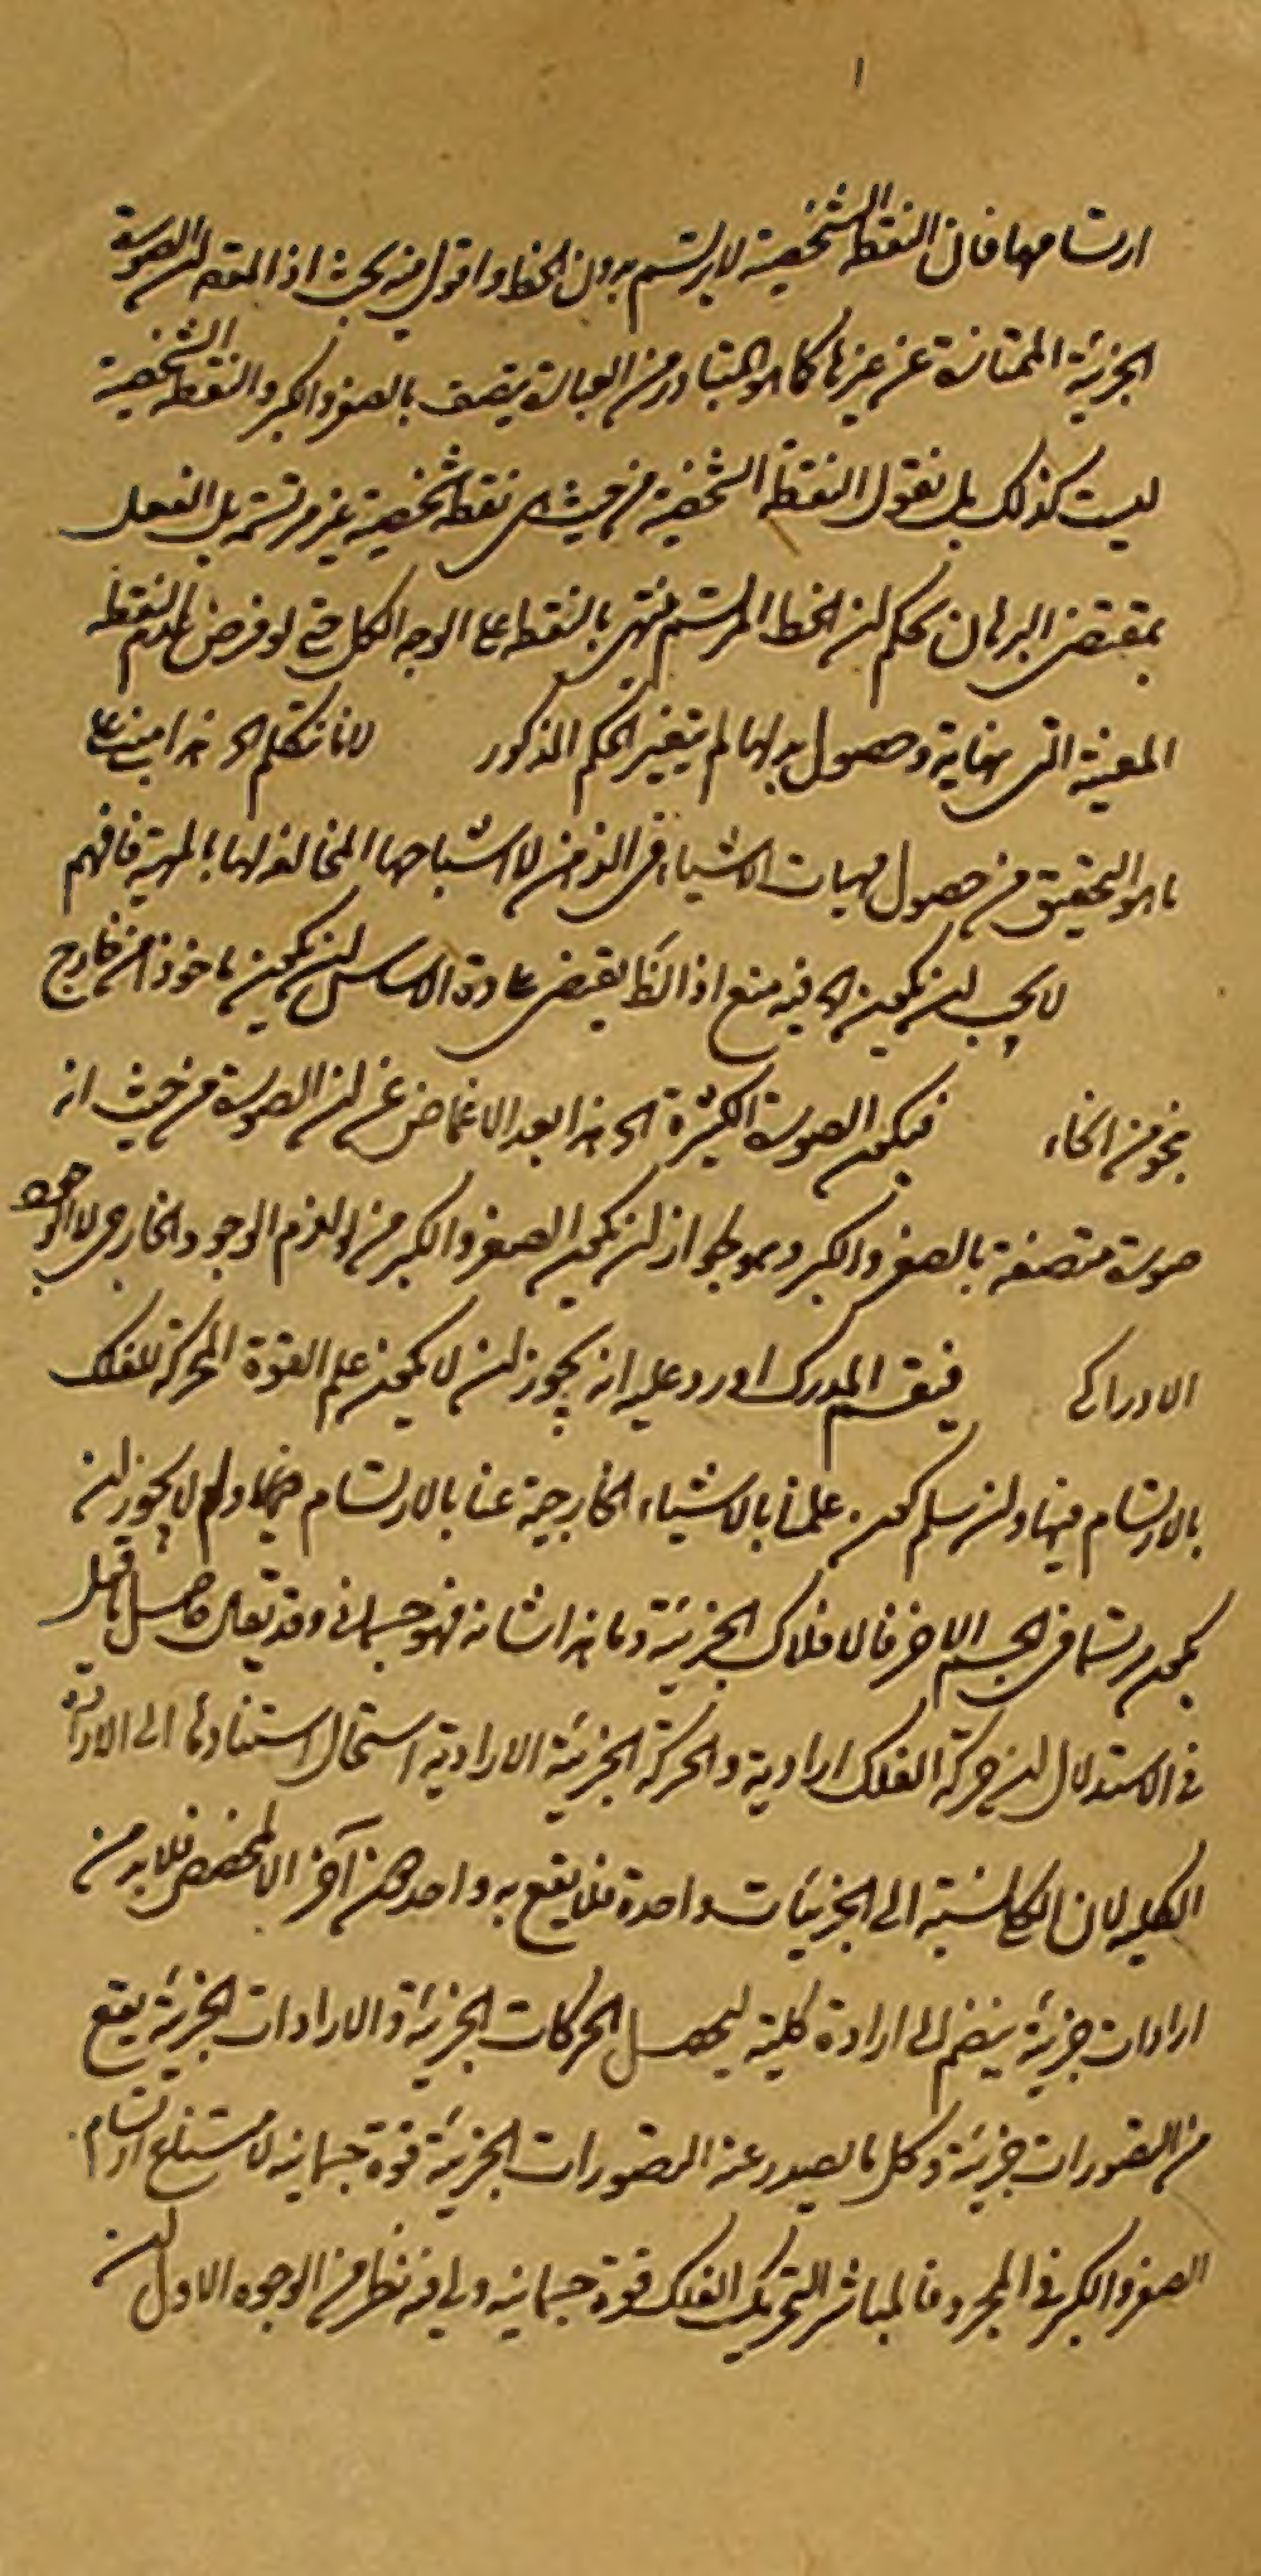 ١
ارتسامها فان النقطة الشخصية لا يرتسم بدون الخط واقول فيه بحث اذ المقصود ان الصورة
الجزئية الممتازة عن غيرها كما هو المتبادر من العبارة يتصف بالصغر والكبر والنقطة الشخصية
ليست كذلك بل نقول النقطة الشخصية من حيث هى نقطة شخصية غير مرتسمة بل العقل
بمقتضى البرهان يحكم لن الخط المرتسم ينتهى بالنقطة على الوجه الكلى حتى لو فرض النقطة
المعينة التى نهاية وحصول بدلها لم يتغير الحكم المذكور لانا نتكلم اه هذا مبنى على
ما هو التحقيق من حصول مهيات الاشياء فى الذهن لا اشباحها المخالفة لها بالمهية فافهم
لا يجب لن يكون اه فيه منع اذ الظ يقتضى عادة الاساس لن يكون ماخوذا من خارج
بنحو من انحاء فيكون الصورة الكثيرة اه هذا بعد الاغماض عن لن الصورة من حيث انه
صورة متصفة بالصغر والكبر وهو لجواز لن يكون الصغر والكبر من لوازم الوجود الخارجى لا الوجود
الادراكى فينقسم المدرك اورد عليه انه يجوز لن لا يكون علم القوة المحركة للفلك
بالارتسام فيها ولن سلم كون علمنا بالاشياء الخارجية عنا بالارتسام ولم لا يجوز لن
يكون مرتسما فى الجسم الاخر فالافلاك الجزئية وما هذا شانه فهو جسمانى وقد يقال حاصل ما قيل
فى الاستدلال لن حركة الفلك ارادية والحركة الجزئية الارادية استحال استنادها الى الارادة
الكلية لان الكلى نسبته الى الجزئيات واحدة فلا يقع به واحد دون آخر الا لمخصص فلا بد من
ارادات جزئية ينضم الى ارادة كلية ليحصل الحركات الجزئية والارادات الجزئية يقع
من التصورات جزئية وكل ما يصدر عنه التصورات الجزئية قوة جسمانية لامتناع ارتسام
الصغر والكبر فى المجرد فالمباشر لتحريك الفلك قوة جسمانية وفيه نظر من الوجوه الاول لن